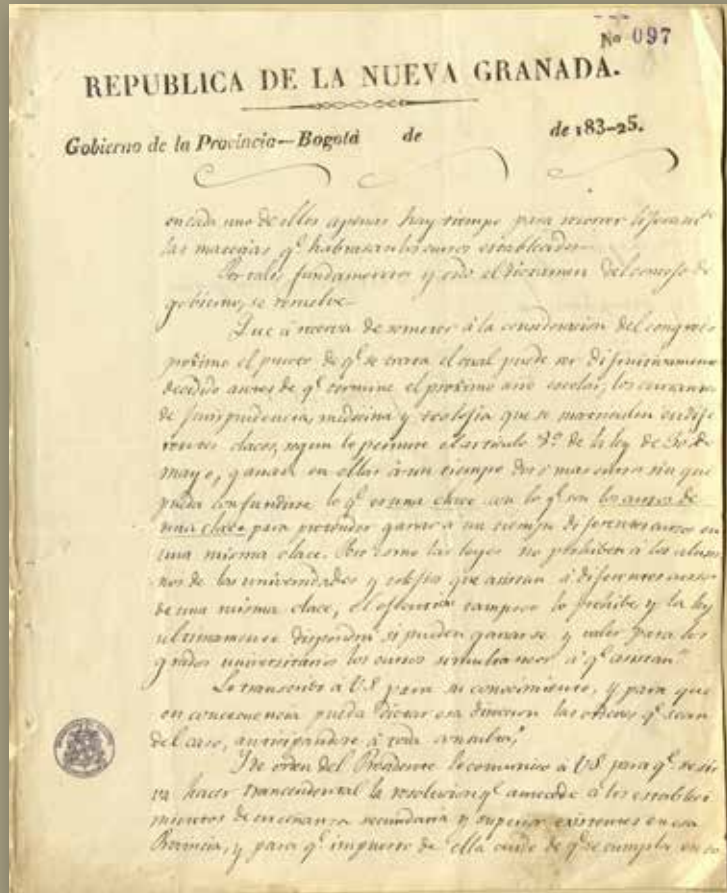 No 097
REPUBLICA DE LA NUEVA GRANADA.
Gobierno de la Provincia—Bogotá de de 183-25.
en cada uno de ellos apenas hay tiempo para
las q.e los cursos establecidos.
Por tales fundamentos y oido el dictamen del consejo de
gobierno, se resuelve
Que á reserva de someter á la consideracion del congreso
proximo el punto de q.e se trata el cual puede ser difinitivamente
decidido antes de q.e termine el proximo año escolar, los cursantes
de jurisprudencia, medicina y teolojia que se matriculen en dife
rentes clases, segun lo permite el articulo 8º de la ley de 30 de
mayo, ganen en ellas á un tiempo dos ó mas cursos sin que
pueda confundirse lo q.e es una clase con lo q.e son los cursos de
una clase para pretender ganar á un tiempo diferentes cursos en
una misma clase. Pero como las leyes no prohiben á los alum
nos de las universidades y colejios que asistan á diferentes cursos
de una misma clase, el tampoco lo prohibe y la ley
ultimamente dispondrá si pueden ganarse y valer para los
grados universitarios los cursos simultaneos á q.e asistan"
Lo transcribo á VS para su conocimiento, y para que
en consecuencia pueda dictar esa direccion las ordenes q.e sean
del caso, anticipandose á toda consulta,"
De orden del Presidente lo comunico á VS para q.e se sir
va hacer trancendental la resolucion q.e antecede á los estableci
mientos de enseñanza secundaria y superior existentes en esa
Provincia, y para q.e impuesto de ella cuide de q.e se cumpla en